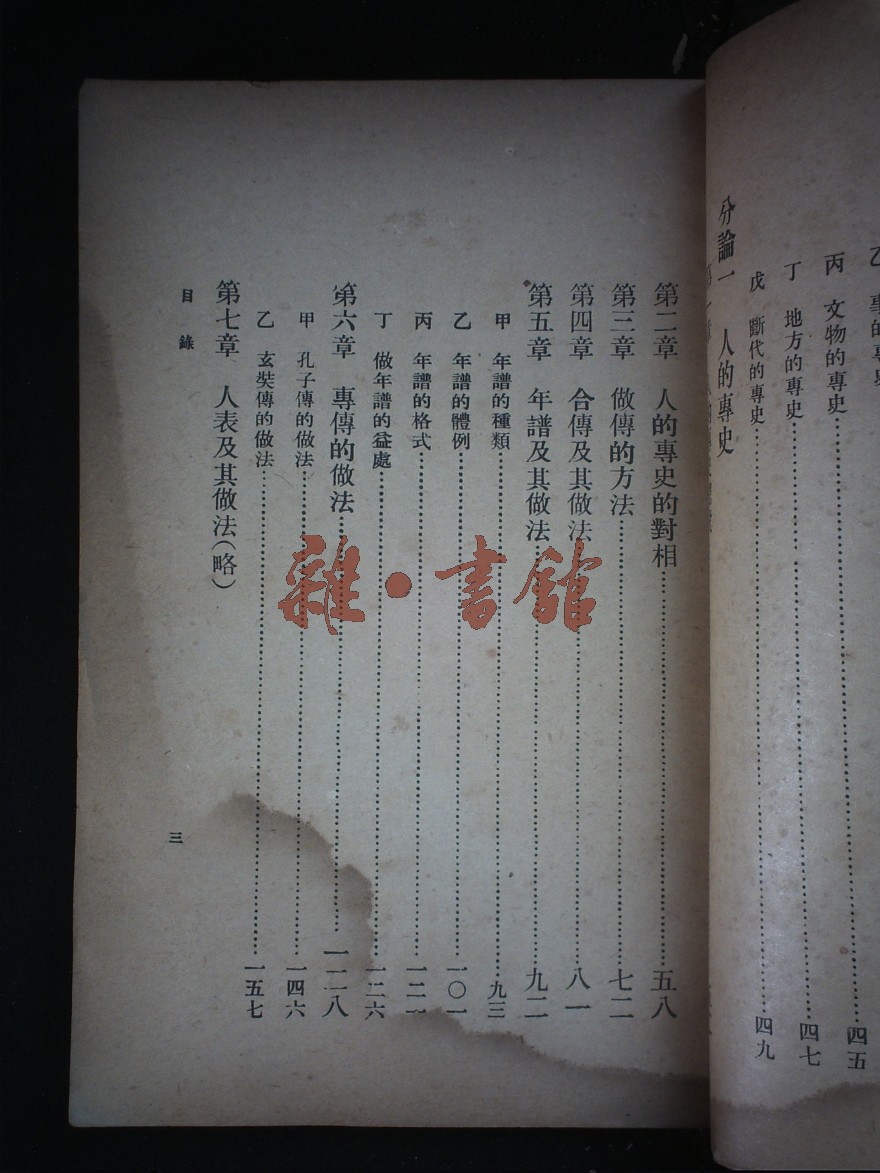 乙 專的專史
丙 文物的專史……四五
丁 地方的專史……四七
戊 斷代的專史……四九
分論一 人的專史
第二章 人的專史的對相……五八
第三章 做傳的方法……七二
第四章 合傳及其做法……八一
第五章 年譜及其做法……九二
甲 年譜的種類……九三
乙 年譜的體例……一〇一
丙 年譜的格式……一二
丁 做年譜的益處……一二六
第六章 專傳的做法……一二八
甲 孔子傳的做法……一四六
乙 玄奘傳的做法……一五七
第七章 人表及其做法(略)
目錄
三
雜·書館